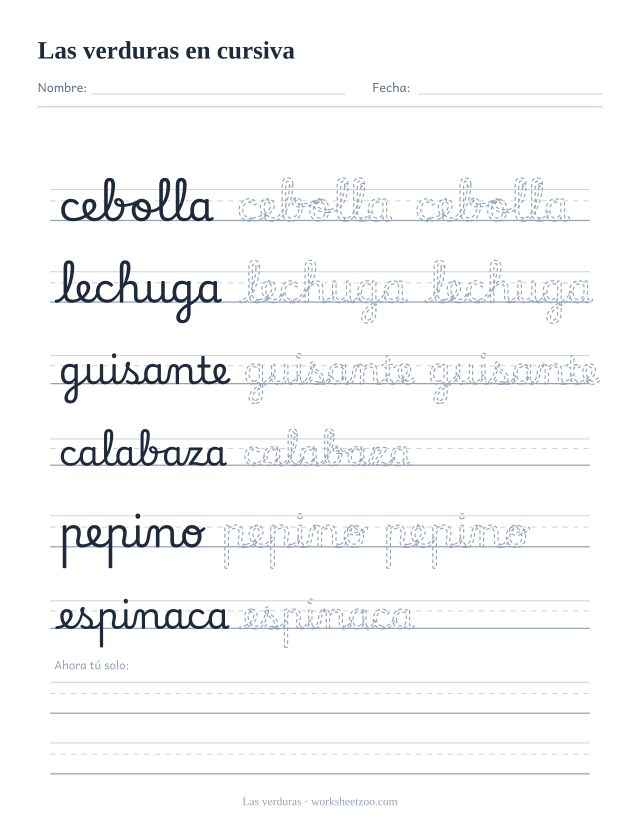 Las verduras en cursiva
Nombre: Fecha:
cebolla cebolla cebolla
lechuga lechuga lechuga
guisante guisante guisante
calabaza calabaza
pepino pepino pepino
espinaca espinaca
Ahora tú solo:
Las verduras · worksheetzoo.com